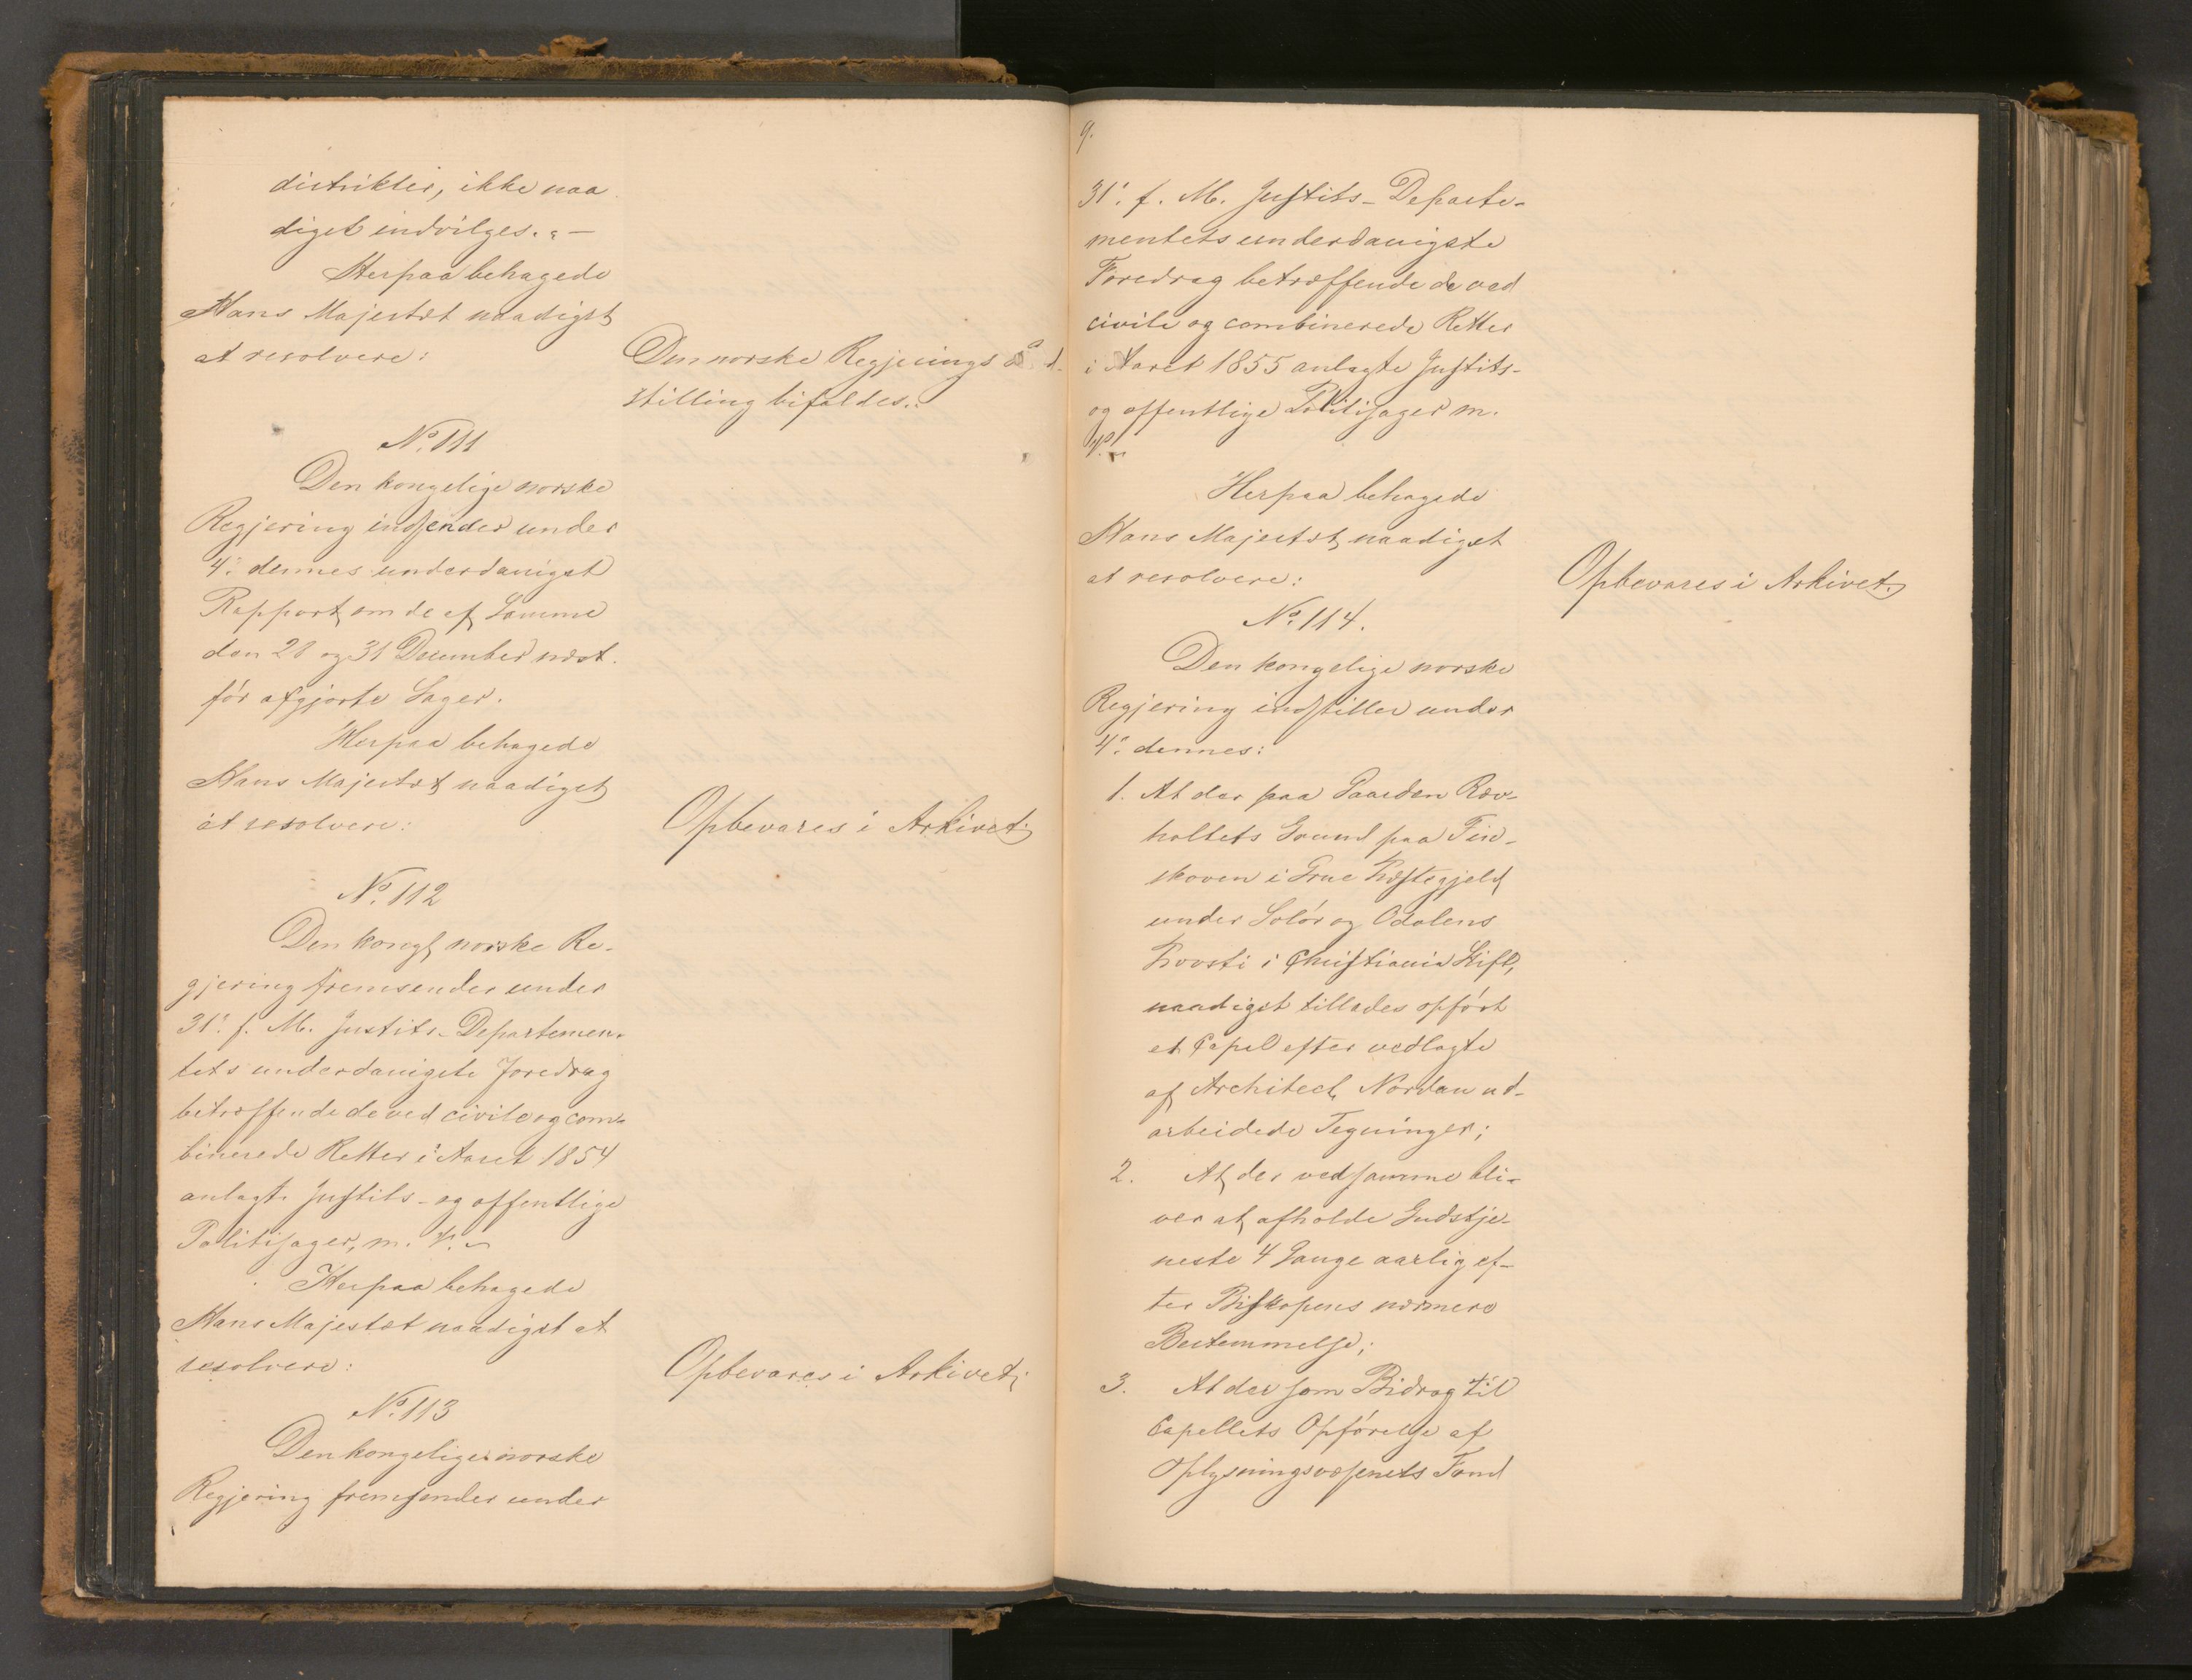 distrikter, ikke naa
digst indvilges.-
Herpaa behagede
Hans Majestæt naadigst
at resolvere:
Den norske Regjerings
stilling bifaldes.
No. 111
Den kongelige norske
Regjering indsender under
4. dennes underdanigst
Rapport om de af Samme
den 28 og 31 December næst
før afgjorte Sager.
Herpaa behagede
Hans Majestæt naadigst
at resolvere:
Opbevares i Arkivet.
No. 112
Den kongl norske Re-
gjering fremsender under
31. f. M. Justits-Departemen-
tets underdanigste Foredrag
betræffende de ved civile og com-
binerede Retter i Aaret 1854
anlagte Justits- og offentlige
Politisager, m. V.
Herpaa behagede
Hans Majestæt naadigst at
resolvere:
Opbevares i Arkivet.
No. 113
Den kongelige norske
Regjering fremsender under
9.
31. f. M. Justits-Departe-
mentets underdanigste
Foredrag betræffende de ved
civile og combinerede Retter
i Aaret 1855 anlagte Justits-
og offentlige Politisager m.
V.
Herpaa behagede
Hans Majestæt naadigst
at resolvere:
Opbevares i Arkivet.
No. 114.
Den kongelige norske
Regjering indstiller under
4. dennes:
1. At der paa Gaarden Rev-
holtets Grund paa Fin-
skoven i Grue Præstegjeld
under Solør og Odalens
Provsti i Christiania Stift,
naadigst tillades opført
et Capel efter vedlagte
af Architect Nordan ud-
arbeidede Tegninger;
2. At der ved samme bli-
ver at afholde Gudstje-
neste 4 Gange aarlig ef-
ter Biskopens nærmere
Bestemmelse;
3. At der som Bidrag til
Capellets Opførelse af
Oplysningsvæsenets Fond